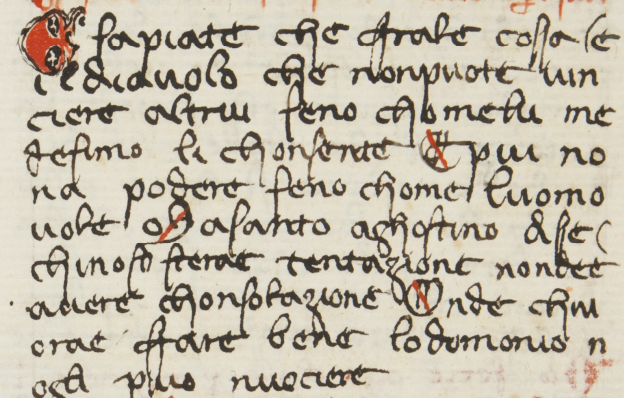 E sapiate che frale cossa se
il diavolo che non puote vin
ciere altrui seno chomelu me
desimo li chonsente E piu no
na podere seno chome luomo
vole Ma santo aghostino disse
chi no sterae tentazione non dee
avere chonsolazione Onde chiu
orae ffare bene lo domonio n
ogli puo nuociere